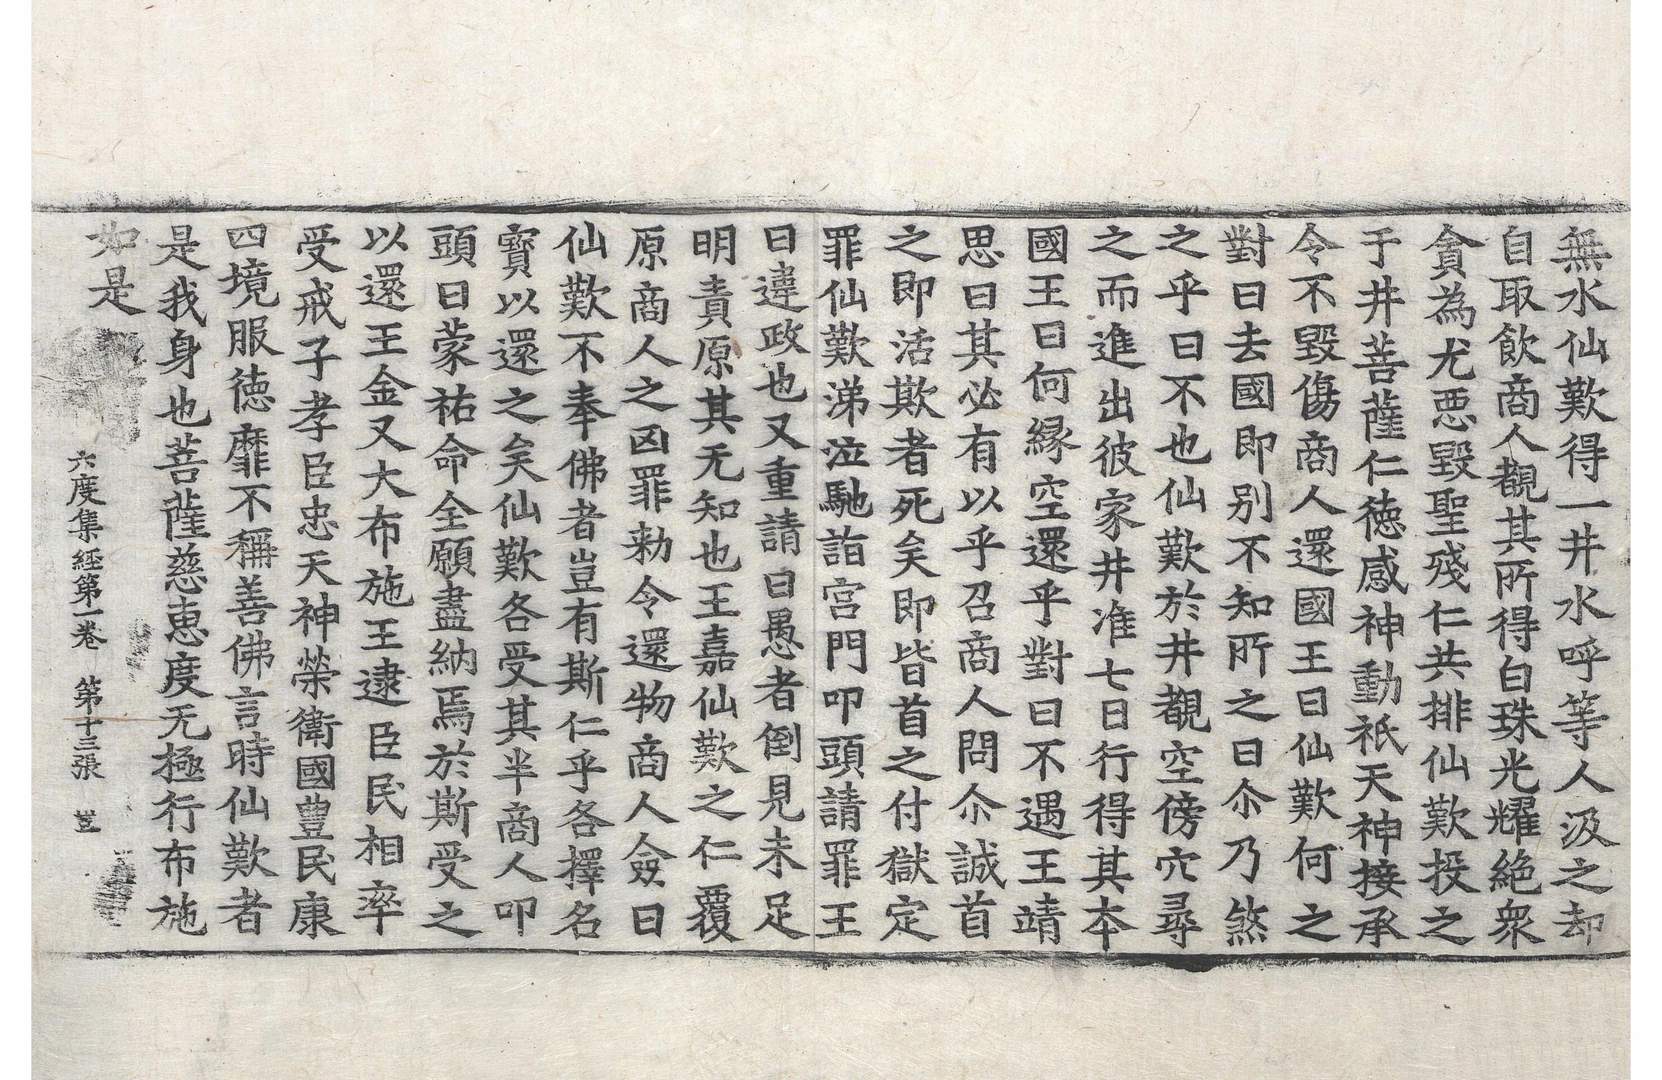 無水仙歎得一井水呼等人汲之却
自取飲商人覩其所得白珠光耀絶衆
貪為尤惡毀聖殘仁共排仙歎投之
于井菩薩仁徳感神動祇天神接承
令不毀傷商人還國王曰仙歎何之
對曰去國即别不知所之曰尒乃煞
之乎曰不也仙歎於井覩空傍穴尋
之而進出彼家井准七日行得其本
國王曰何縁空還乎對曰不遇王靖
思曰其必有以乎召商人問尒誠首
之即活欺者死矣即皆首之付獄定
罪仙歎涕泣馳詣宫門叩頭請罪王
曰違政也又重請曰愚者倒見未足
明責原其无知也王嘉仙歎之仁覆
原商人之凶罪勑令還物商人僉曰
仙歎不奉佛者豈有斯仁乎各擇名
寶以還之矣仙歎各受其半商人叩
頭曰蒙祐命全願盡納焉於斯受之
以還王金又大布施王逮臣民相率
受戒子孝臣忠天神榮衛國豊民康
四境服徳靡不稱善佛言時仙歎者
是我身也菩薩慈恵度无極行布施
如是
六度集經第一卷　第十三張　豈